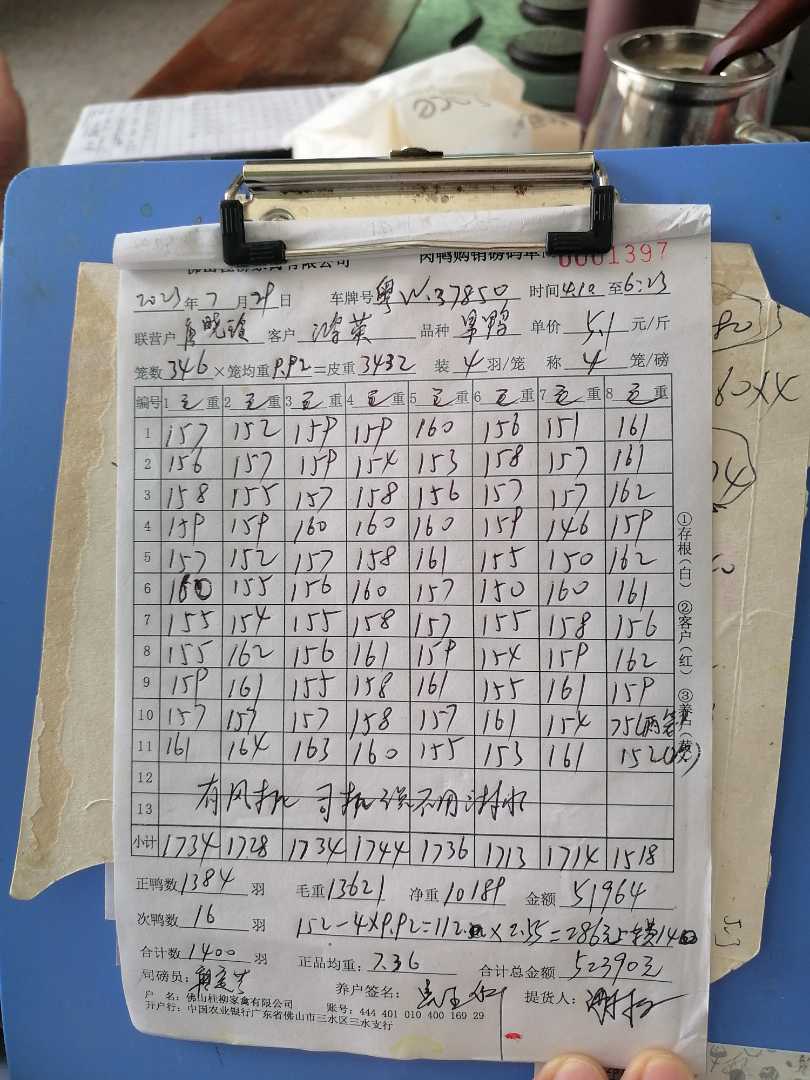 佛山桂柳家禽有限公司 肉鸭购销磅码单 0001397
2023年7月29日 车牌号 粤W.37850 时间4:10至6:23
联营户 客户 鸿英 品种 单价 5.1 元/斤
笼数346×笼均重9.92=皮重3432 装4羽/笼 称4笼/磅
编号 1毛重 2毛重 3毛重 4毛重 5毛重 6毛重 7毛重 8毛重
1 157 152 159 159 160 156 151 161
2 156 157 159 154 153 158 157 161
3 158 155 157 158 156 157 157 162
4 159 159 160 160 160 159 146 159
5 157 152 157 158 161 155 150 162
6 160 155 156 160 157 150 160 161
7 155 154 155 158 157 155 158 156
8 155 162 156 161 159 154 159 162
9 159 161 155 158 161 155 161 159
10 157 157 157 158 157 161 154 75(两笼)
11 161 164 163 160 155 153 161 152
12
13
有风机 司机说不用淋水
小计 1734 1728 1734 1744 1736 1713 1714 1518
正鸭数1384羽 毛重13621 净重10189 金额51964
次鸭数16羽 152-4×9.92=112×2.55=286元
合计数1400羽 正品均重:7.36 合计总金额52390元
司磅员: 养户签名: 提货人:
户 名:佛山桂柳家禽有限公司 账号:444 401 010 400 169 29
开户行:中国农业银行广东省佛山市三水区三水支行
①存根(白) ②客户(红) ③养户(黄)